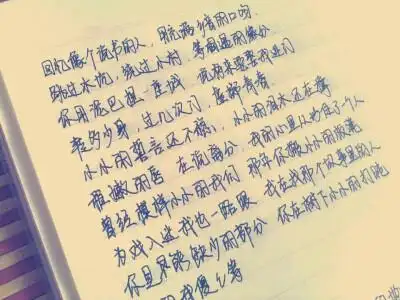 回忆像个说书的人，用充满乡音的口吻
跳过水坑，绕过小村，等相遇的缘分
你用泥巴捏一座城，说将来要娶我进门
转多少身，过几次门，虚掷青春
小小的誓言还不稳，小小的泪水还在撑
稚嫩的唇 在说离分 我的心里从此住了一个人
曾经模样小小的我们 那年你搬小小的板凳
为戏入迷我也一路跟 我在找那个故事里的人
你是不能缺少的部分 你在树下小小的打盹
的我傻傻等